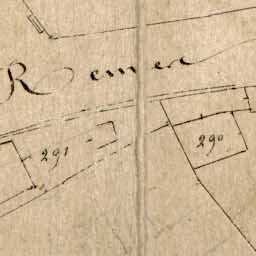 Remere
291
290